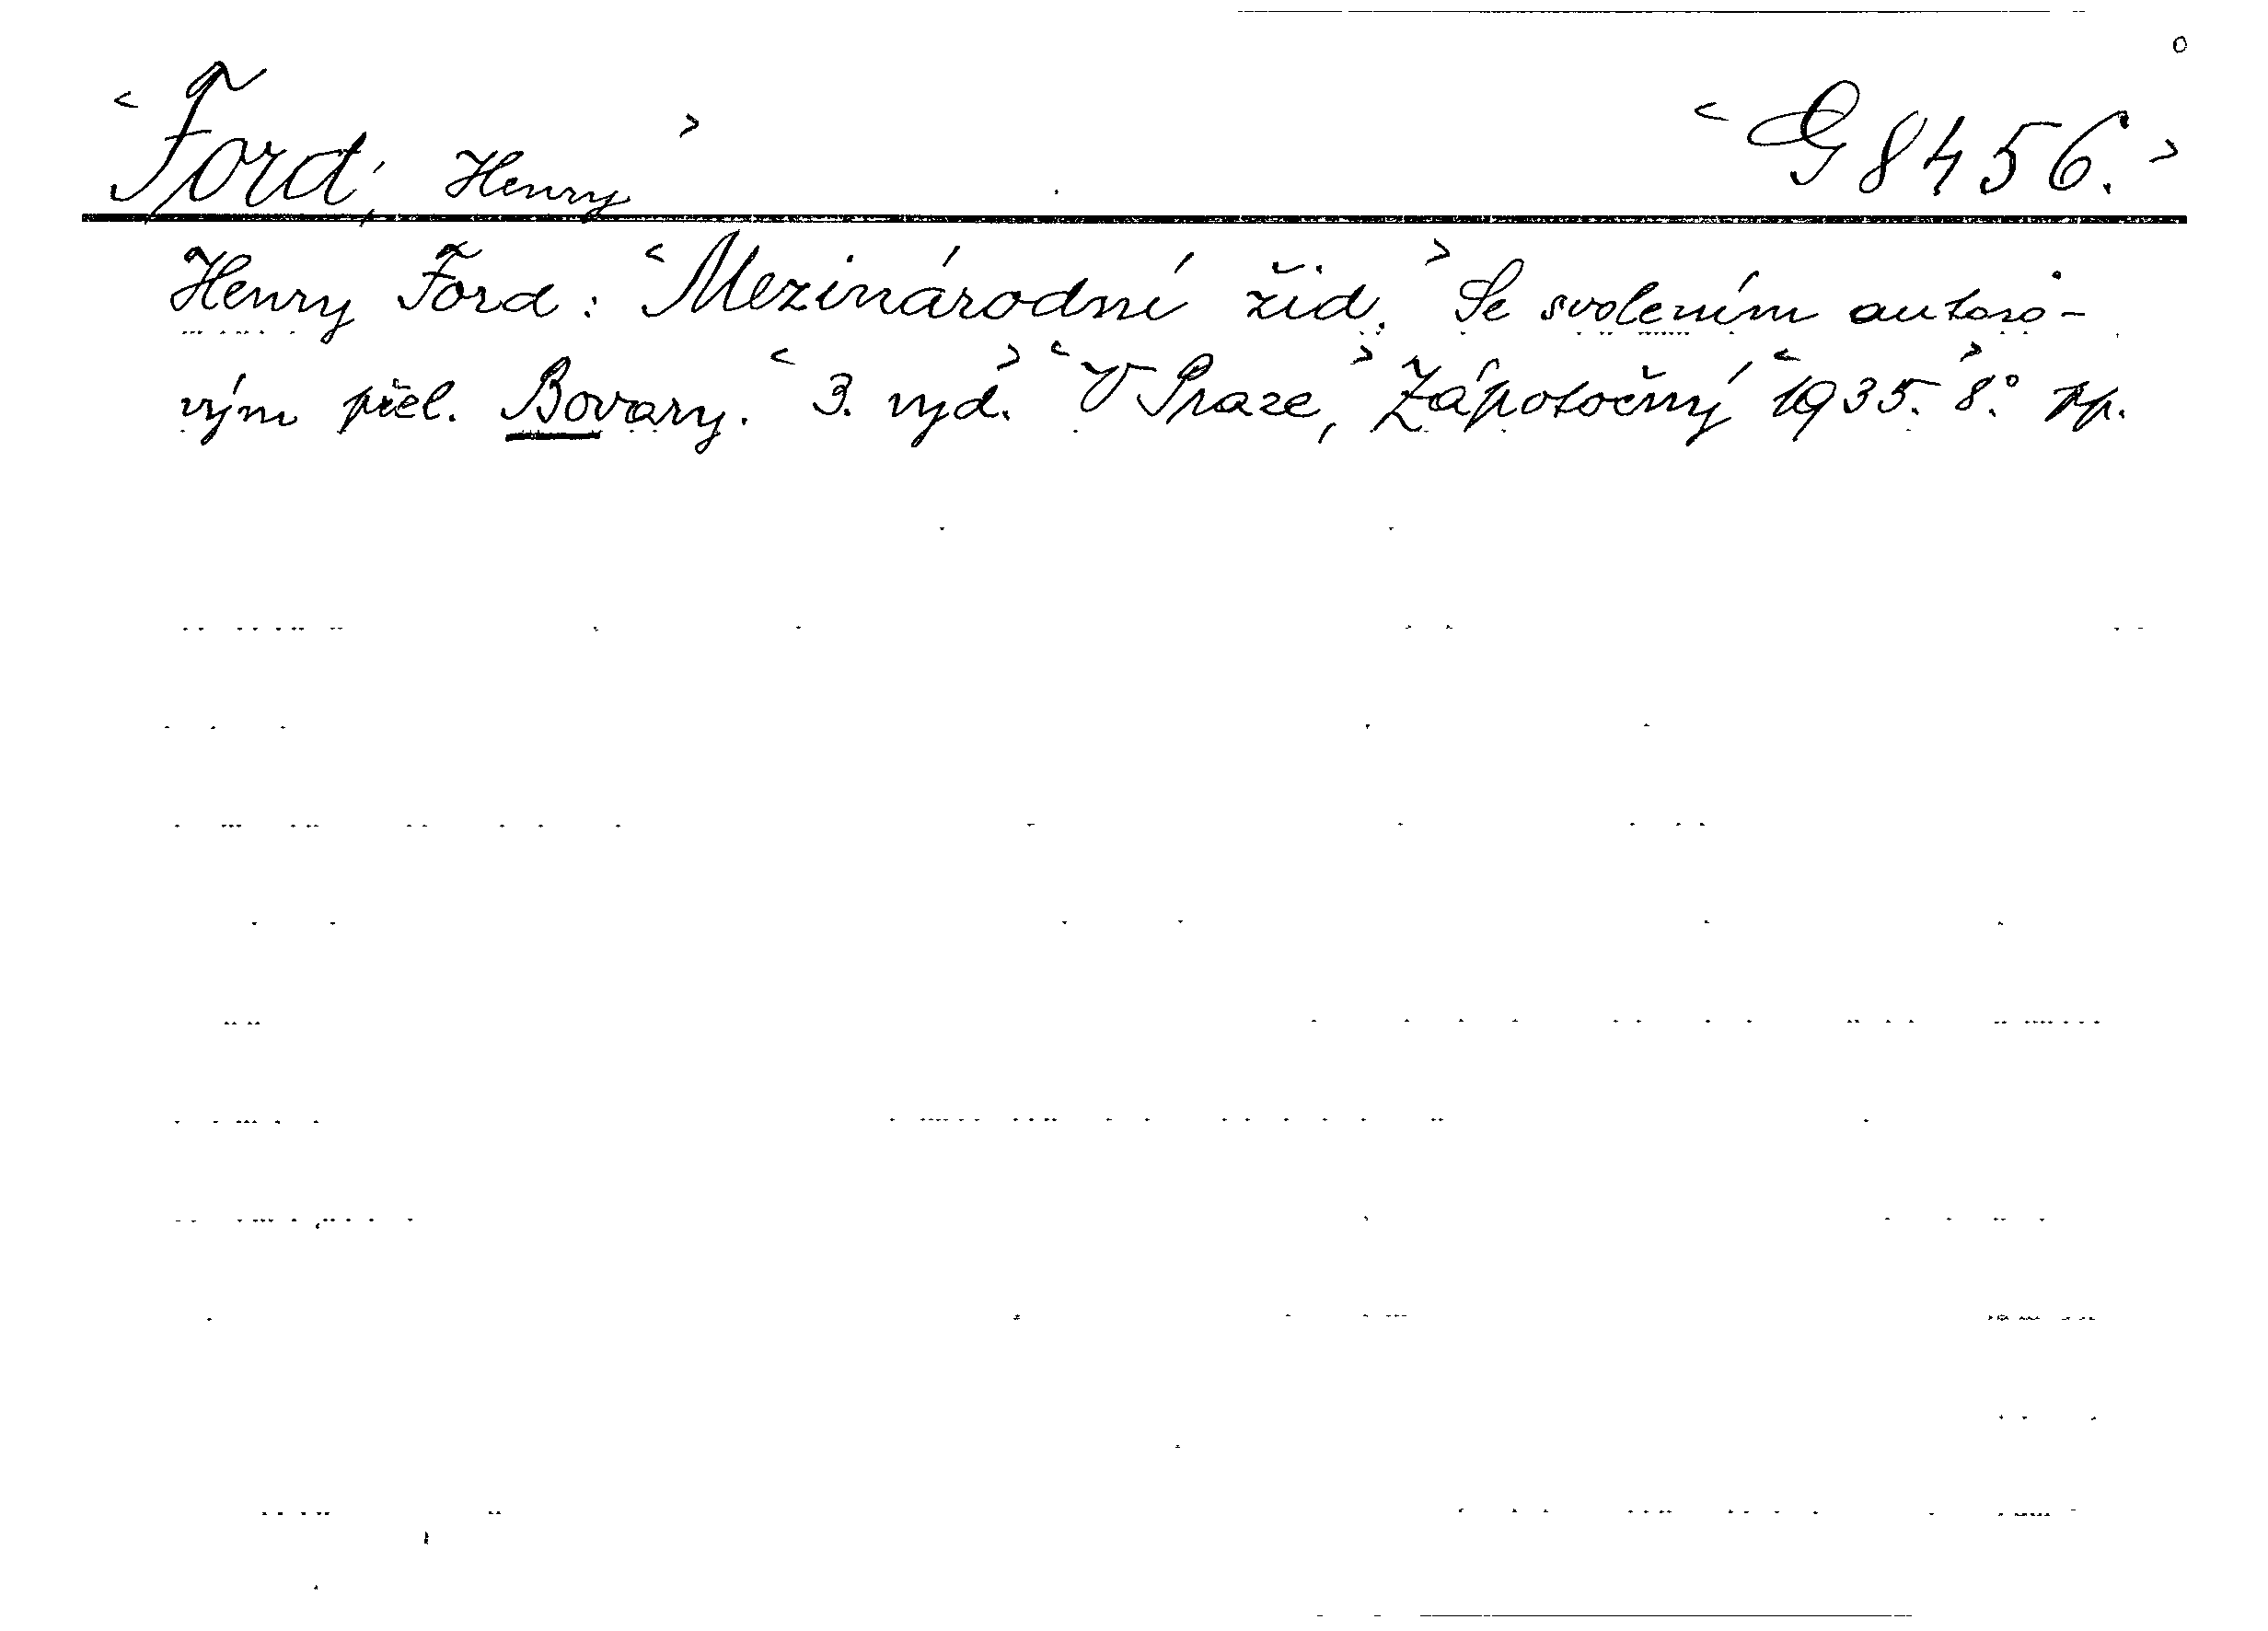 <Ford, Henry> <G 8456.>
Henry Ford: <Mezinárodní žid.> Se svolením autoro-
vým přel. Bovary. <3. vyd.> <V Praze,> Zápotočný <1935.> 8.° pp.